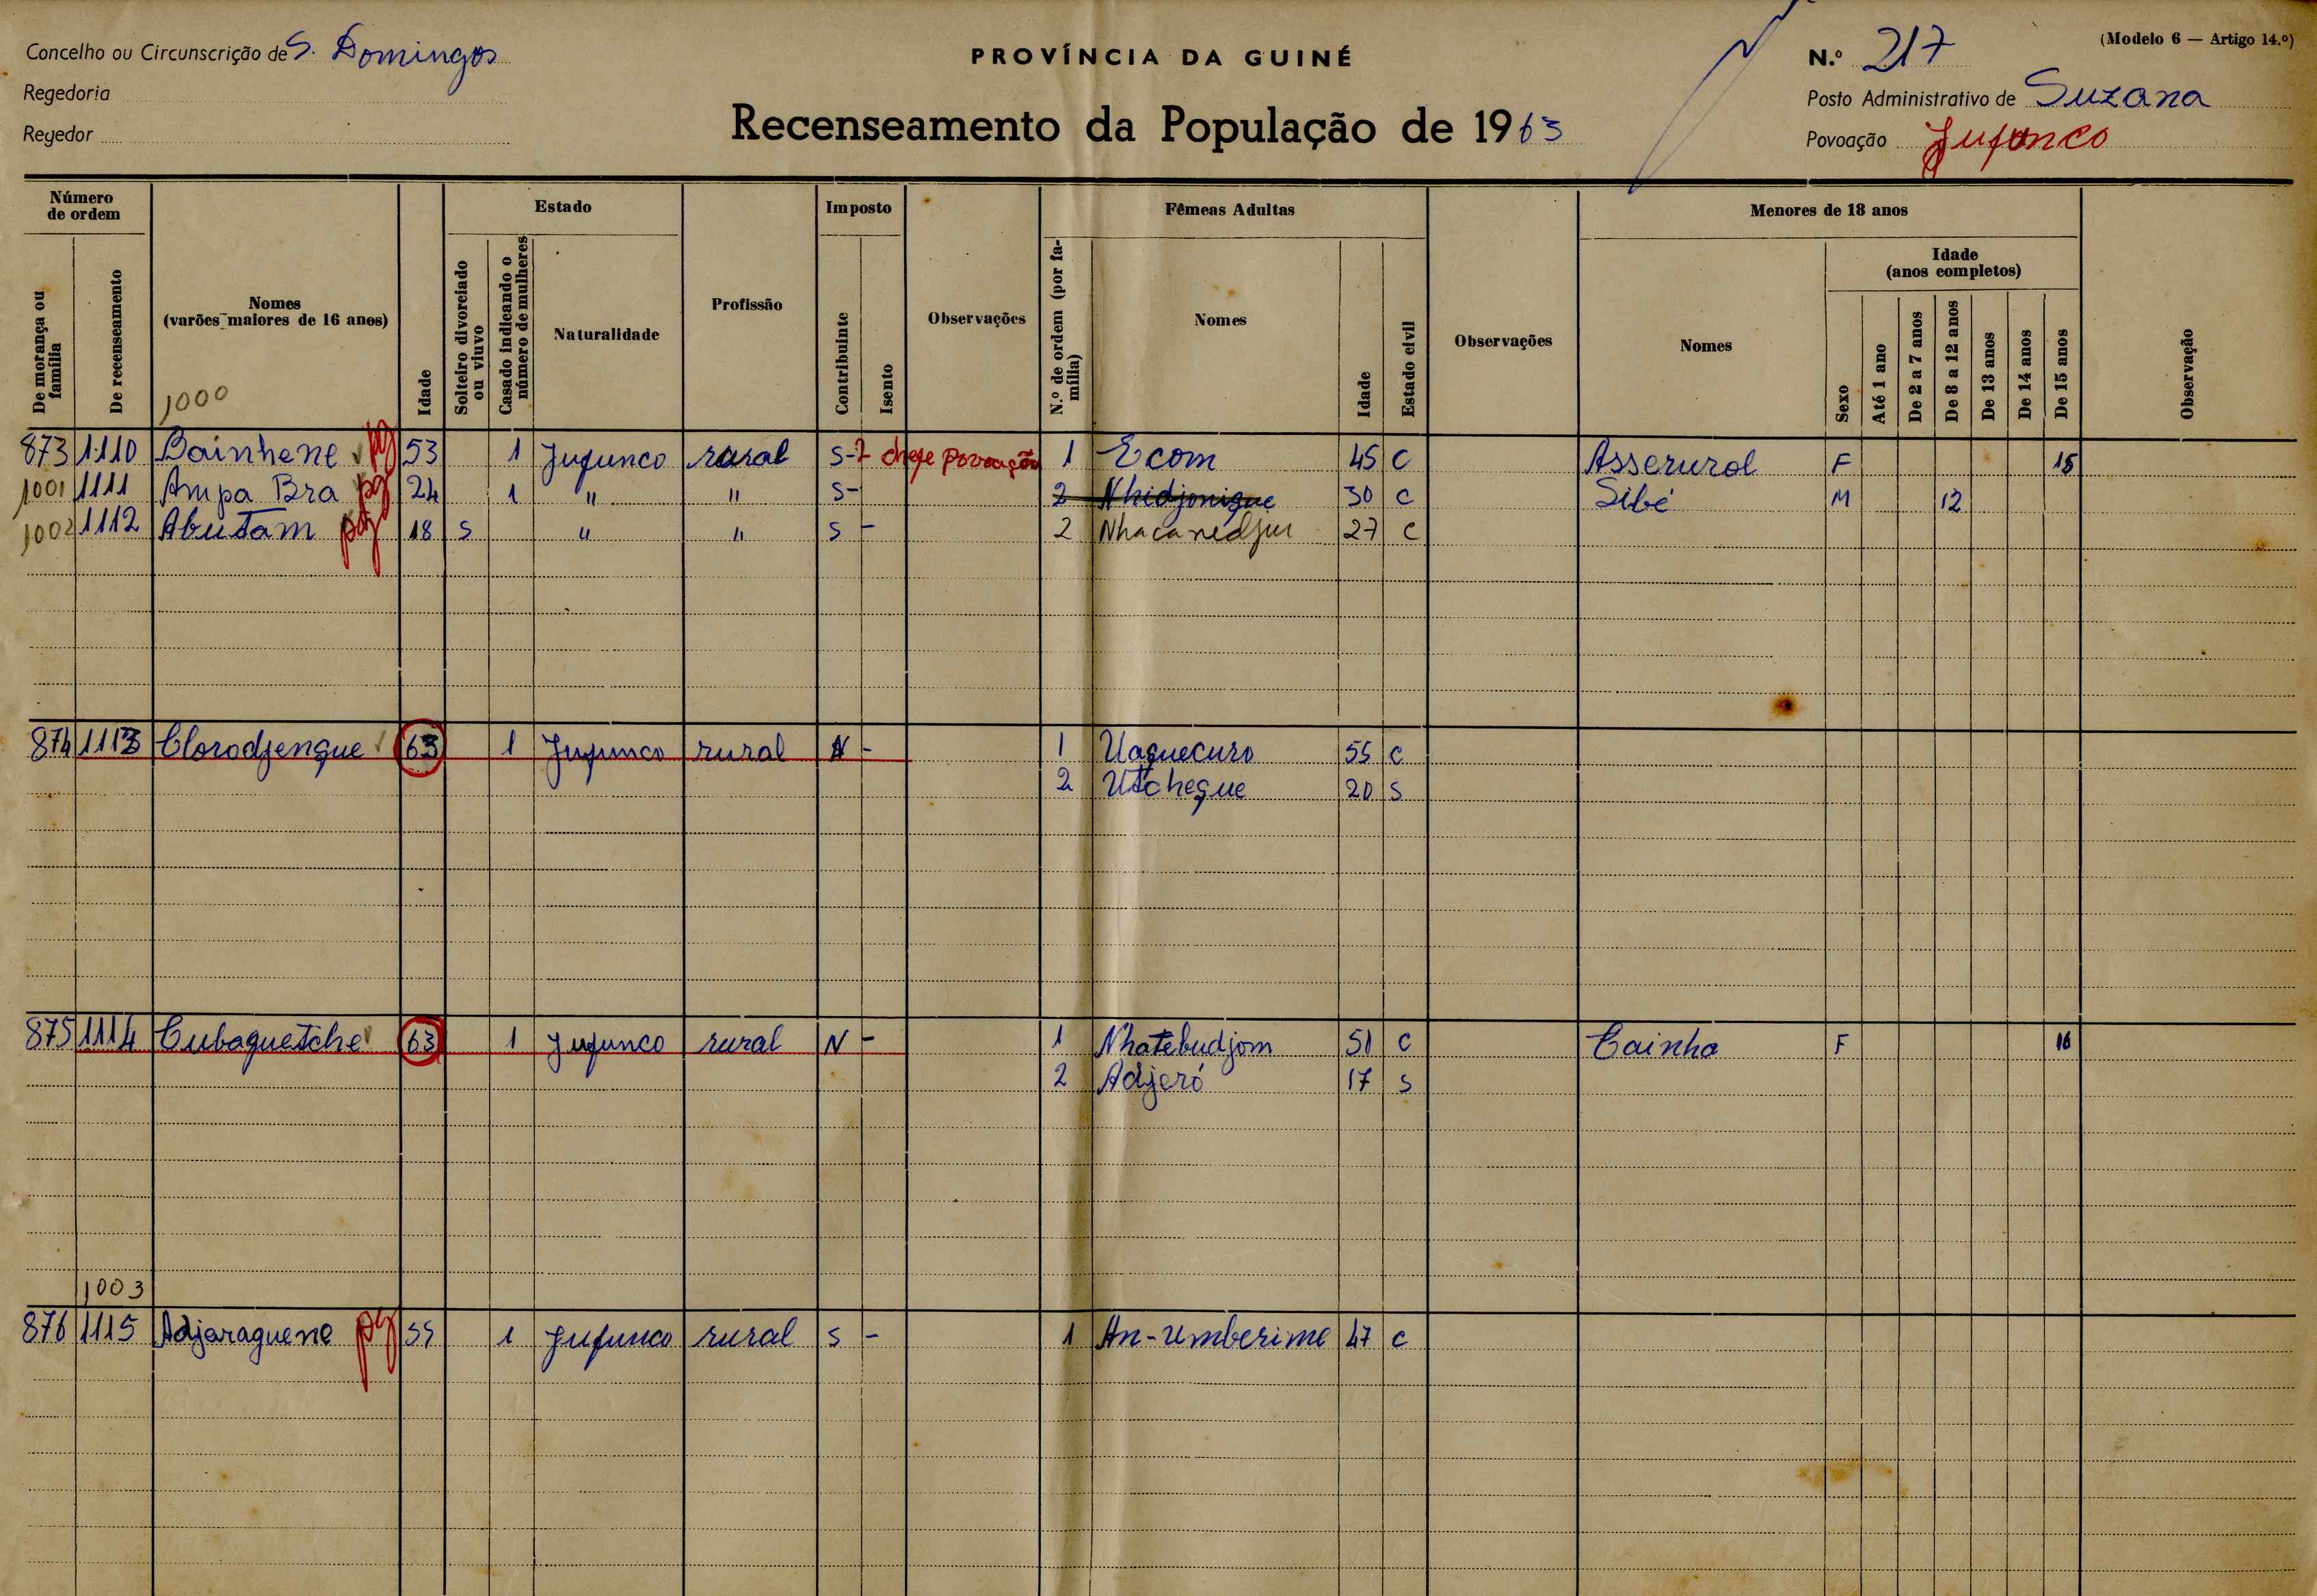 Concelho ou Circunscrição de S. Domingos
Regedoria
Regedor
PROVÍNCIA DA GUINÉ
Recenseamento da População de 1963
(Modelo 6 — Artigo 14.º)
N.º 217
Posto Administrativo de Suzana
Povoação Jufunco
Número de ordem
De morança ou família
De recenseamento
Nomes
(varões maiores de 16 anos)
1000
Idade
Estado
Solteiro divorciado ou viuvo
Casado indicando o número de mulheres
Naturalidade
Profissão
Imposto
Contribuinte
Isento
Observações
Fêmeas Adultas
N.º de ordem (por família)
Nomes
Idade
Estado civil
Observações
Menores de 18 anos
Nomes
Sexo
Idade
(anos completos)
Até 1 ano
De 2 a 7 anos
De 8 a 12 anos
De 13 anos
De 14 anos
De 15 anos
Observação
873 1110 Bainhene pg 53 1 Jufunco rural S - chefe povoação 1 Ecom 45 C Asserural F 15
1001 1111 Ampa Bra pg 24 1 " " S - 2 Nhidjonique 30 C Sibé M 12
1002 1112 Abutam pg 18 S " " S - 2 Nhacanedjur 27 C
874 1113 Clorodjengue 63 1 Jufunco rural N - 1 Uaguecuro 55 C
2 Utchegue 20 S
875 1114 Cubaguetche 63 1 Jufunco rural N - 1 Nhatebudjom 51 C Cainha F 16
2 Adjeró 17 S
1003
876 1115 Adjaraguene pg 55 1 Jufunco rural S - 1 An-Umberime 47 C